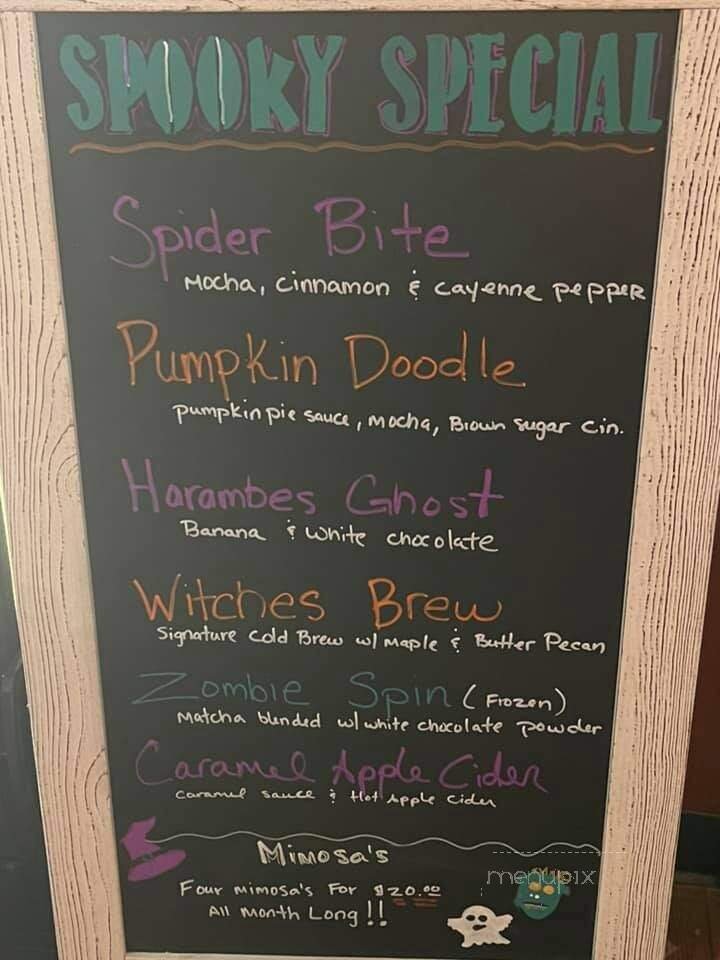 SPOOKY SPECIAL
Spider Bite
Mocha, Cinnamon & cayenne pepper
Pumpkin Doodle
pumpkin pie sauce, mocha, Brown sugar Cin.
Harambes Ghost
Banana & White chocolate
Witches Brew
Signature Cold Brew w/ Maple & Butter Pecan
Zombie Spin (Frozen)
Matcha blended w/ white chocolate powder
Caramel Apple Cider
Caramel sauce & Hot Apple Cider
Mimosa's
Four Mimosa's For $20.00
All Month Long!!
menupix